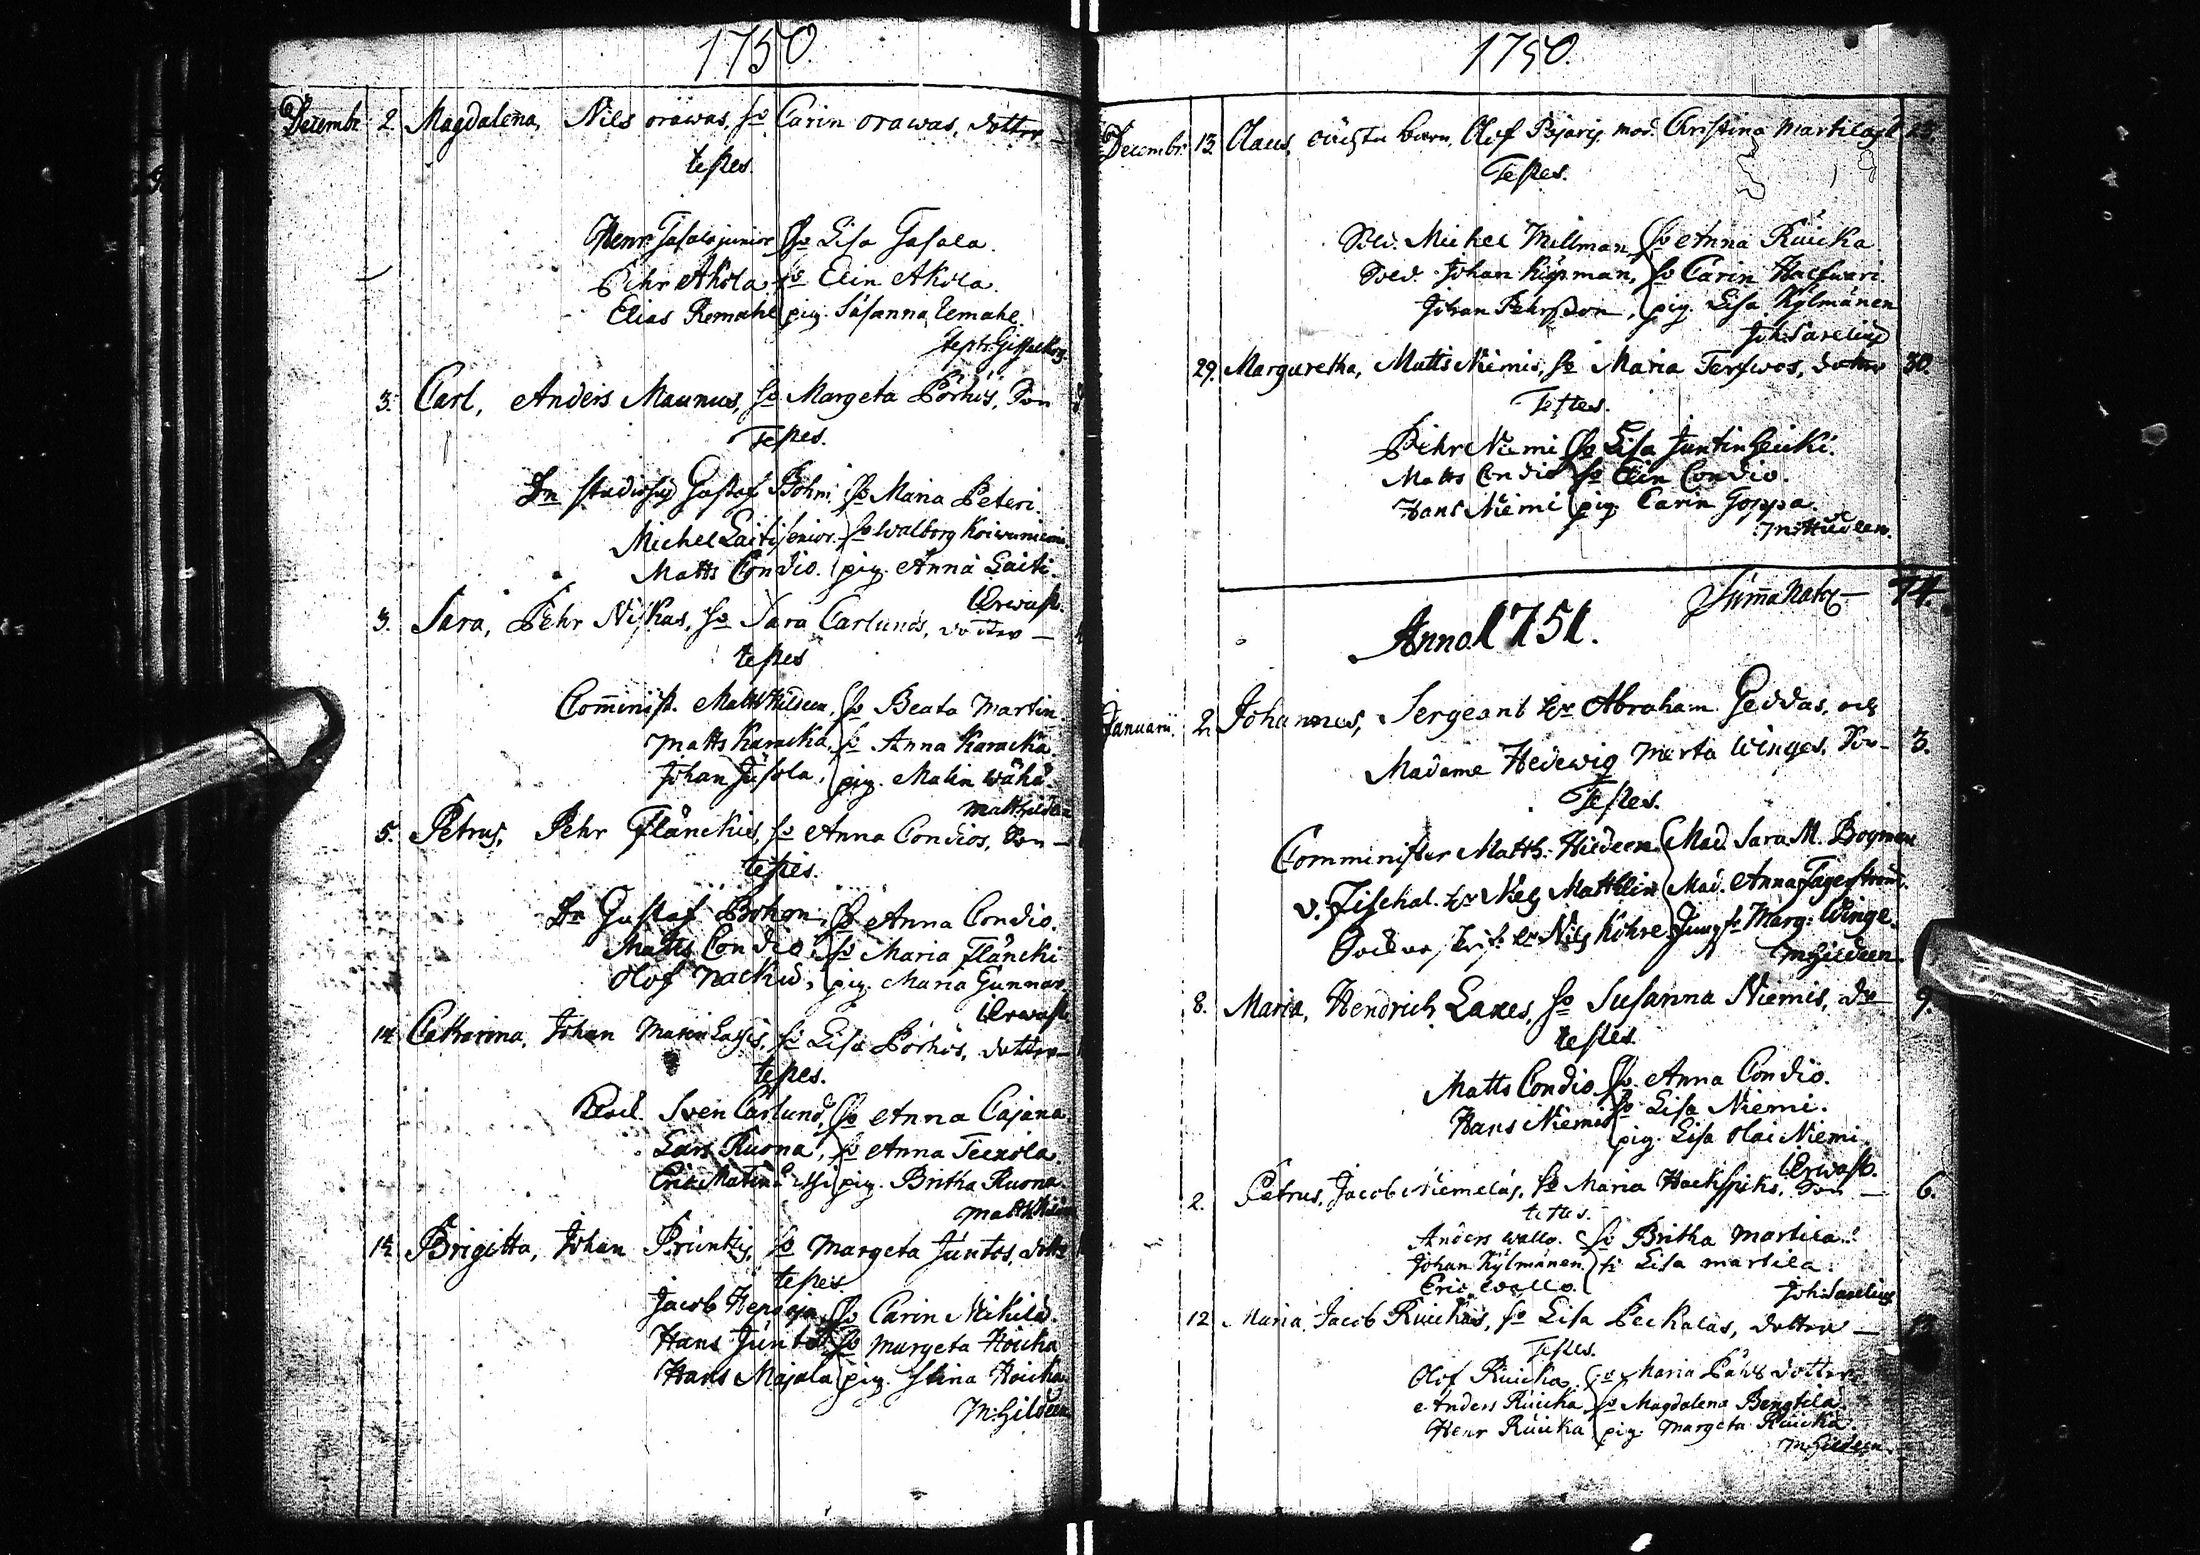 1750.
Decembr 2 Magdalena, Nils orawas, ho Carin orawas, dotter
testes.
Henr. Jasala junior ho Lisa Jasala.
Pehr Akola ho Elin Akola.
Elias Remahl pig. Susanna Remahl.
3. Carl, Anders Maunus, ho Margeta Pörhös, Son
Testes.
Dn studiosus Gustaf Bohm ho Maria Peteri.
Michel Laiti senior. ho Walborg Koivuniemi.
Matts Condio. pig. Anna Laiti.
3. Sara, Pehr Niskas, ho Sara Carlunds, dotter
testes
Com̅inist. Matts Hildeen, ho Beata Martin.
Matts Karacka, ho Anna Karacka
Johan Jusola, pig. Malin Wähä.
Matth. Hildeen
5. Petrus, Pehr Flänckis, ho Anna Condios, Son
testes.
Dn Gustaf Bohm, ho Anna Condio.
Matts Condio, ho Maria Fläncki
Olof Nackus, pig. Maria Gunnar.
14. Catharina, Johan Matin Lassis, ho Lisa Pörhös, dotter
testes.
Sven Carlund, ho Anna Cajana
Lars Ruona, ho Anna Teckola.
Eric Matin Lassi pig. Britha Ruona.
Matth. Hildeen
14. Brigitta, Johan Pruntis, ho Margeta Juntos, dotter
testes
Jacob Hepooja ho Carin Mikila.
Hans Junto ho Margeta Hoicka
Hans Majala pig. Stina Hoicka
M. Hildeen

1750.
Decembr. 13. Claus, oächta barn, Olof Bjaris, mod. Christina Martilas
Testes.
Sold. Michel Millman, ho Anna Ruicka
Sold. Johan Kijsman, ho Carin Halfwari.
Johan Pehrsson, pig. Lisa Kylmänen
Joh. Sarelius
29. Margaretha, Matts Niemis, ho Maria Terfwos, dotter 30.
Testes.
Pehr Niemi ho Lisa Juntinheicki.
Matts Condio ho Elin Condio.
Hans Niemi pig. Carin Joppa.
M. Hildeen.
Sum̅a Nator. 74.
Anno 1751.
Januarii 2. Johannes, Sergeant Hr Abraham Geddas, och
Madame Hedewig Merta Winges, Son 3.
Testes.
Comminister Matth. Hildeen Mad. Sara M. Bogman
v. Fischal. Hr Nels Matthlin Mad. Anna Fagerström.
Hr Nils Köhre Jungfr Marg. Winge.
M. Hildeen
8. Maria, Hendrich Laxes, ho Susanna Niemis, dr 9.
testes
Matts Condio ho Anna Condio.
Hans Niemis ho Lisa Niemi.
pig. Lisa Olai Niemi.
2. Petrus, Jacob Niemeläs, ho Maria Hackssicks, Son 6.
testes.
Anders Wallo. ho Britha Martila.
Johan Kylmänen ho Lisa Martila.
Eric Wallo.
Joh. Sarelius
12 Maria, Jacob Ruickas, ho Lisa Peckalas, dotter
Testes.
Olof Ruicka, ho Maria Påhls dotter
Anders Ruicka ho Magdalena Bengtila
Henr Ruicka pig. Margeta Ruicka.
M. Hildeen.